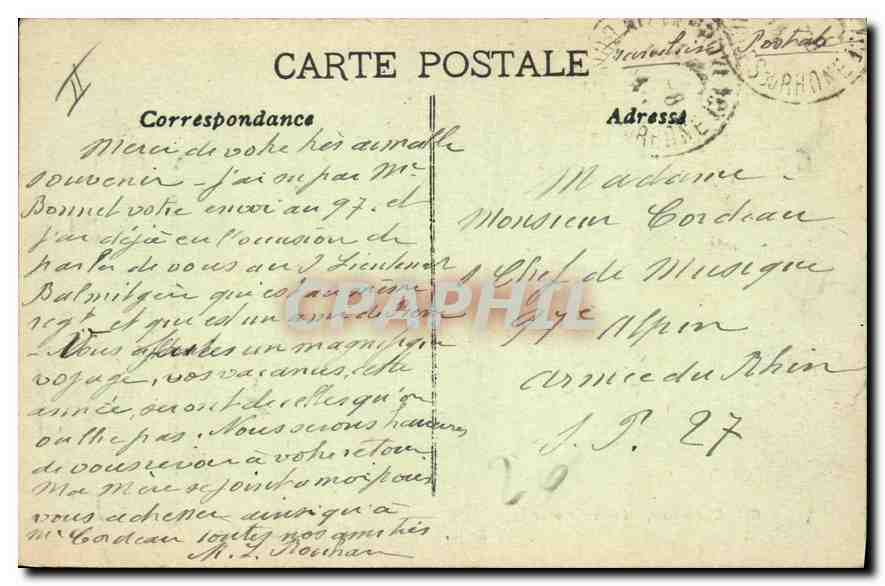 II
CARTE POSTALE
Correspondance
Merci de votre très aimable
souvenir - J'ai su par Mr
Bonnet votre envoi au 97. et
j'ai déjà eu l'occasion de
parler de vous au S Lieutenant
qui est au même
regt et qui est un ami de
- Vous faites un magnifique
voyage, vos vacances, cette
année, seront de celles qu'on
oublie pas. Nous serons heureux
de vous revoir à votre retour
Ma Mère se joint à moi pour
vous adresser ainsi qu'à
Mr Cordeau toutes nos amitiés
M. L.
Adresse
Madame -
Monsieur Cordeau
S Chef de Musique
97e Alpin
Armée du Rhin
S. P. 27
20
CPAPHIL
RHONE
RHONE